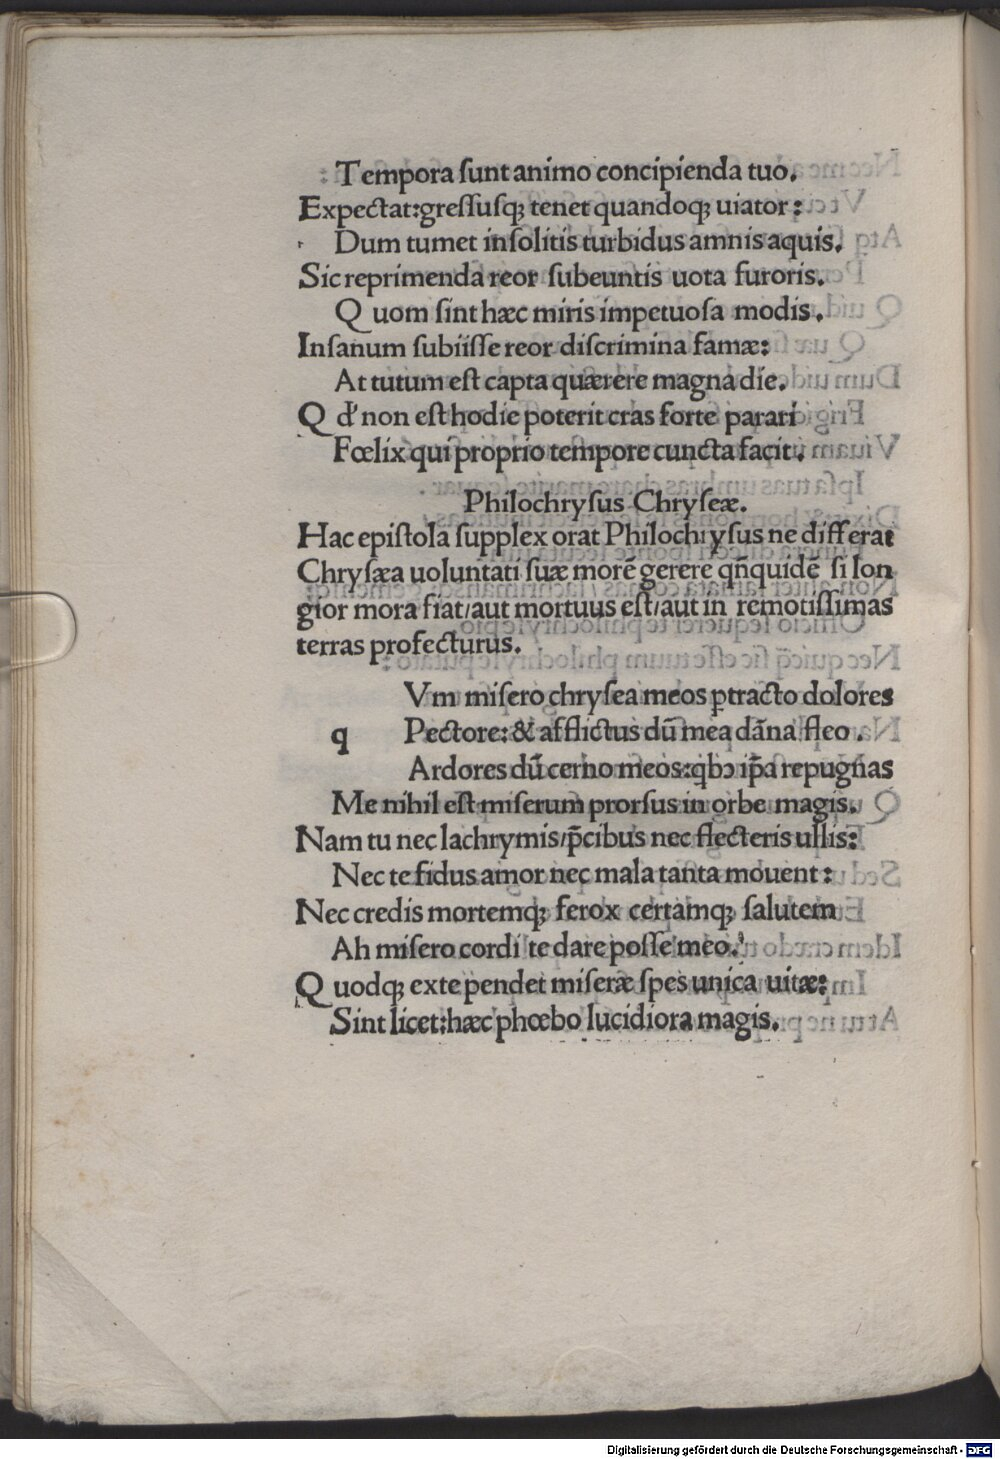 Tempora sunt animo concipienda tuo.
Expectat:gressusqꝫ tenet quandoqꝫ uiator:
Dum tumet insolitis turbidus amnis aquis.
Sic reprimenda reor subeuntis uota furoris.
Quom sint hæc miris impetuosa modis.
Insanum subiisse reor discrimina famæ:
At tutum est capta quærere magna die.
Qd' non est hodie poterit cras forte parari
Fœlix qui proprio tempore cuncta facit.
Philochrysus Chryseæ.
Hac epistola supplex orat Philochrysus ne differat
Chrysæa uoluntati suæ morē gerere qñquidē si lon
gior mora fiat/aut mortuus est/aut in remotissimas
terras profecturus.
Vm misero chrysea meos ꝑtracto dolores
q Pectore:& afflictus dū mea dāna fleo
Ardores dū cerno meos:qbꝰ ip̄a repugnas
Me nihil est miserum prorsus in orbe magis.
Nam tu nec lachrymis/p̄cibus nec flecteris ullis:
Nec te fidus amor nec mala tanta mouent:
Nec credis mortemqꝫ ferox certamqꝫ salutem
Ah misero cordi te dare posse meo.
Quodqꝫ ex te pendet miseræ spes unica uitæ:
Sint licet:hæc phœbo lucidiora magis.
Digitalisierung gefördert durch die Deutsche Forschungsgemeinschaft - DFG